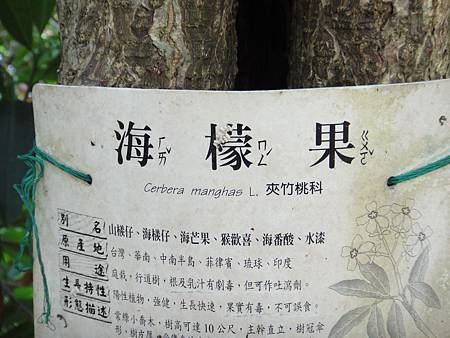 海ㄏㄞˇ檬ㄇㄥˊ果ㄍㄨㄛˇ
Cerbera manghas L. 夾竹桃科
別名 山檨仔、海檨仔、海芒果、猴歡喜、海番酸、水漆
原產地 台灣、華南、中南半島、菲律賓、琉球、印度
用途 庭栽，行道樹，根及乳汁有劇毒，但可作吐瀉劑。
生長特性 陽性植物，強健，生長快速，果實有毒，不可誤食。
形態描述 常綠小喬木，樹高可達10公尺，主幹直立，樹冠傘
形，樹皮厚